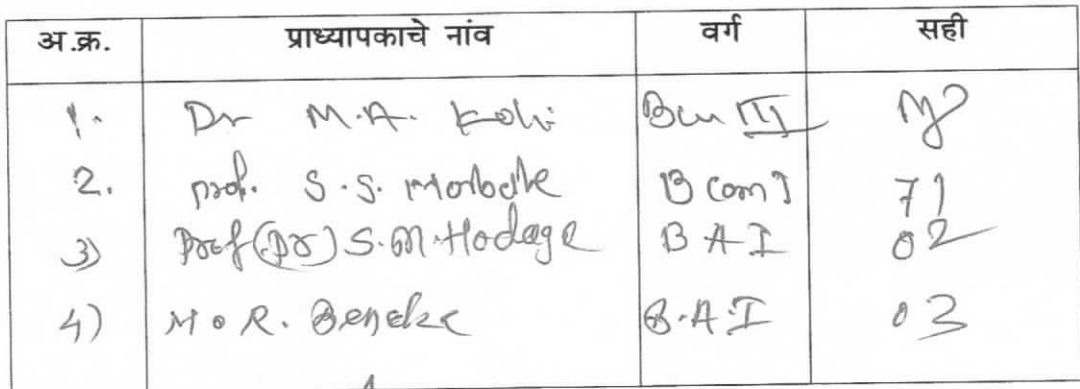 अ.क्र. प्राध्यापकाचे नांव वर्ग सही
1. Dr M.A. Koli III
2. prof. S.S. B com I 71
3) Prof (Dr) S.M. Hodage B A I 02
4) M.R. B.A.I 03